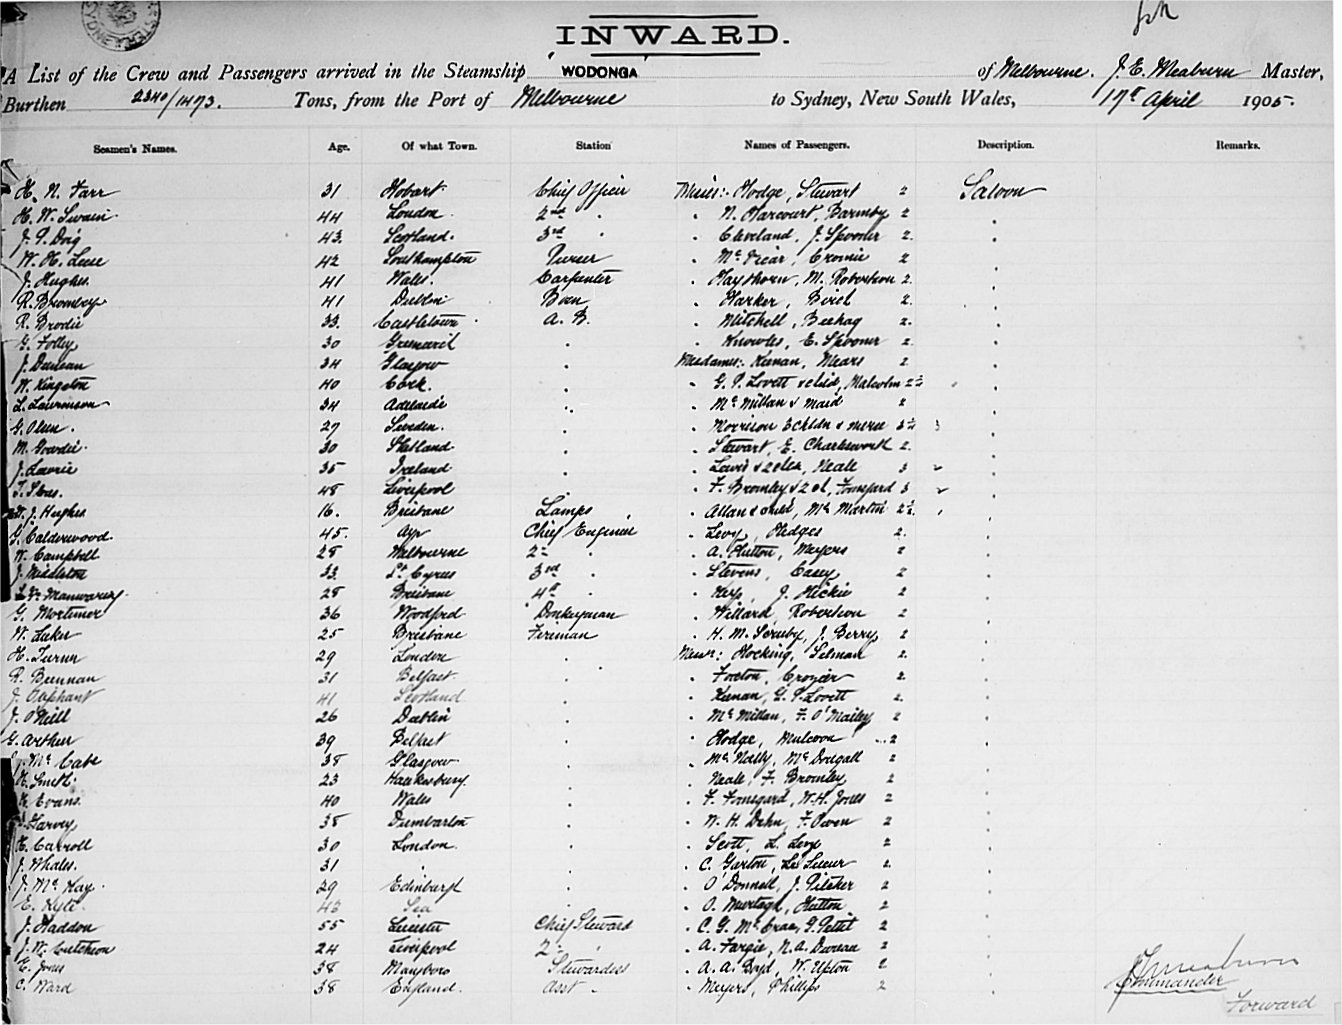 INWARD.
A List of the Crew and Passengers arrived in the Steamship WODONGA of Melbourne. J. E. Meaburn Master,
Burthen 2340/1473. Tons, from the Port of Melbourne to Sydney, New South Wales, 17th April 1905.
Seamen's Names. Age. Of what Town. Station Names of Passengers. Description. Remarks.
H. N. Farr 31 Hobart Chief Officer Misses:- Hodge, Stewart 2 Saloon
H. W. Swain 44 London 2nd " " N. Harcourt, Barmby 2 "
J. P. Doig 43. Scotland. 3rd " " Cleveland, J. Spooner 2. "
W. H. Leese 42 Southampton Purser " McVicar, Cromie 2 "
J. Hughes. 41 Wales. Carpenter " Haythorn, M. Robertson 2. "
R. Bromley 41 Dublin Bosn " Harker, Birch 2. "
R. Brodie 33. Castletown A. B. " Mitchell, Beehag 2. "
G. Folley 30 " " Knowles, E. Spooner 2. "
J. Duncan 34 Glasgow " Mesdames:- Keenan, Mears 2 "
W. Kingston 40 Cork. " " G. P. Lovett & child, Malcolm 2½ "
L. Laurenson 34 Adelaide " " McMillan & maid 2 "
G. Olsen. 27 Sweden. " " Morrison 3 chldn & nurse 3½ 3 "
M. Gowdie 30 Shetland " " Stewart, E. Charlesworth 2. "
J. Lawrie 35 Ireland " " Lewis & 2 chn, Neale 3 "
48 Liverpool " " F. Bromley & 2 ch, Fonsgard 3 "
W. J. Hughes 16. Brisbane Lamps " Allan & child, McMartin 2½ "
G. Calderwood. 45. Ayr Chief Engineer " Levy, Hedges 2. "
W. Campbell 28 Melbourne 2nd " " A. Hutton, Meyers 2 "
J. Middleton 33. St Cyrus 3rd " " Stevens, Casey 2 "
Manwaring 28 Brisbane 4th " " J. Hickie 2 "
G. Mortimer 36 Woodford Donkeyman " Willard, Robertson 2 "
W. Luker 25 Brisbane Fireman " H. M. Scruby, J. Berry 2 "
H. Turner 29 London " Messrs: Hocking, Selman 2 "
R. Brennan 31 Belfast " " Foxton, Crozier 2. "
J. Oliphant 41 Scotland " " Keenan, G. P. Lovett 2. "
J. O'Neill 26 Dublin " " McMillan, F. O'Mailey 2 "
G. Arthur 39 Belfast " " Hodge, Mulcoon 2 "
J. McCabe 38 Glasgow " " McNally, McDougall 2 "
H. Smith 23 Hawkesbury " " Neale, F. Bromley 2 "
Evans. 40 Wales " " F. Fonsgard, W. H. Jones 2 "
Harvey 38 Dumbarton " " W. H. Dehn, F. Owen 2 "
H. Carroll 30 London. " " Scott, L. Levy 2 "
J. Whales. 31 " " " C. Garton, Le Sueur 2 "
J. McKay 29 Edinburgh " " O'Donnell, J. Pilcher 2 "
E. Kyte. 43 Sea " " O. Murtagh, Hutton 2 "
J. Haddon 55 Leicester Chief Steward " C. G. McCraa, G. Pettit 2 "
J. W. Cutcheon 24 Liverpool 2nd " " A. Fargie, N. A. Duncan 2 "
E. Jones 38 Maryboro Stewardess " A. A. Boyd, W. Upton 2 "
C. Ward 38 England. Asst " " Meyers, Phillips 2 "
J. Meaburn
Commander
Forward